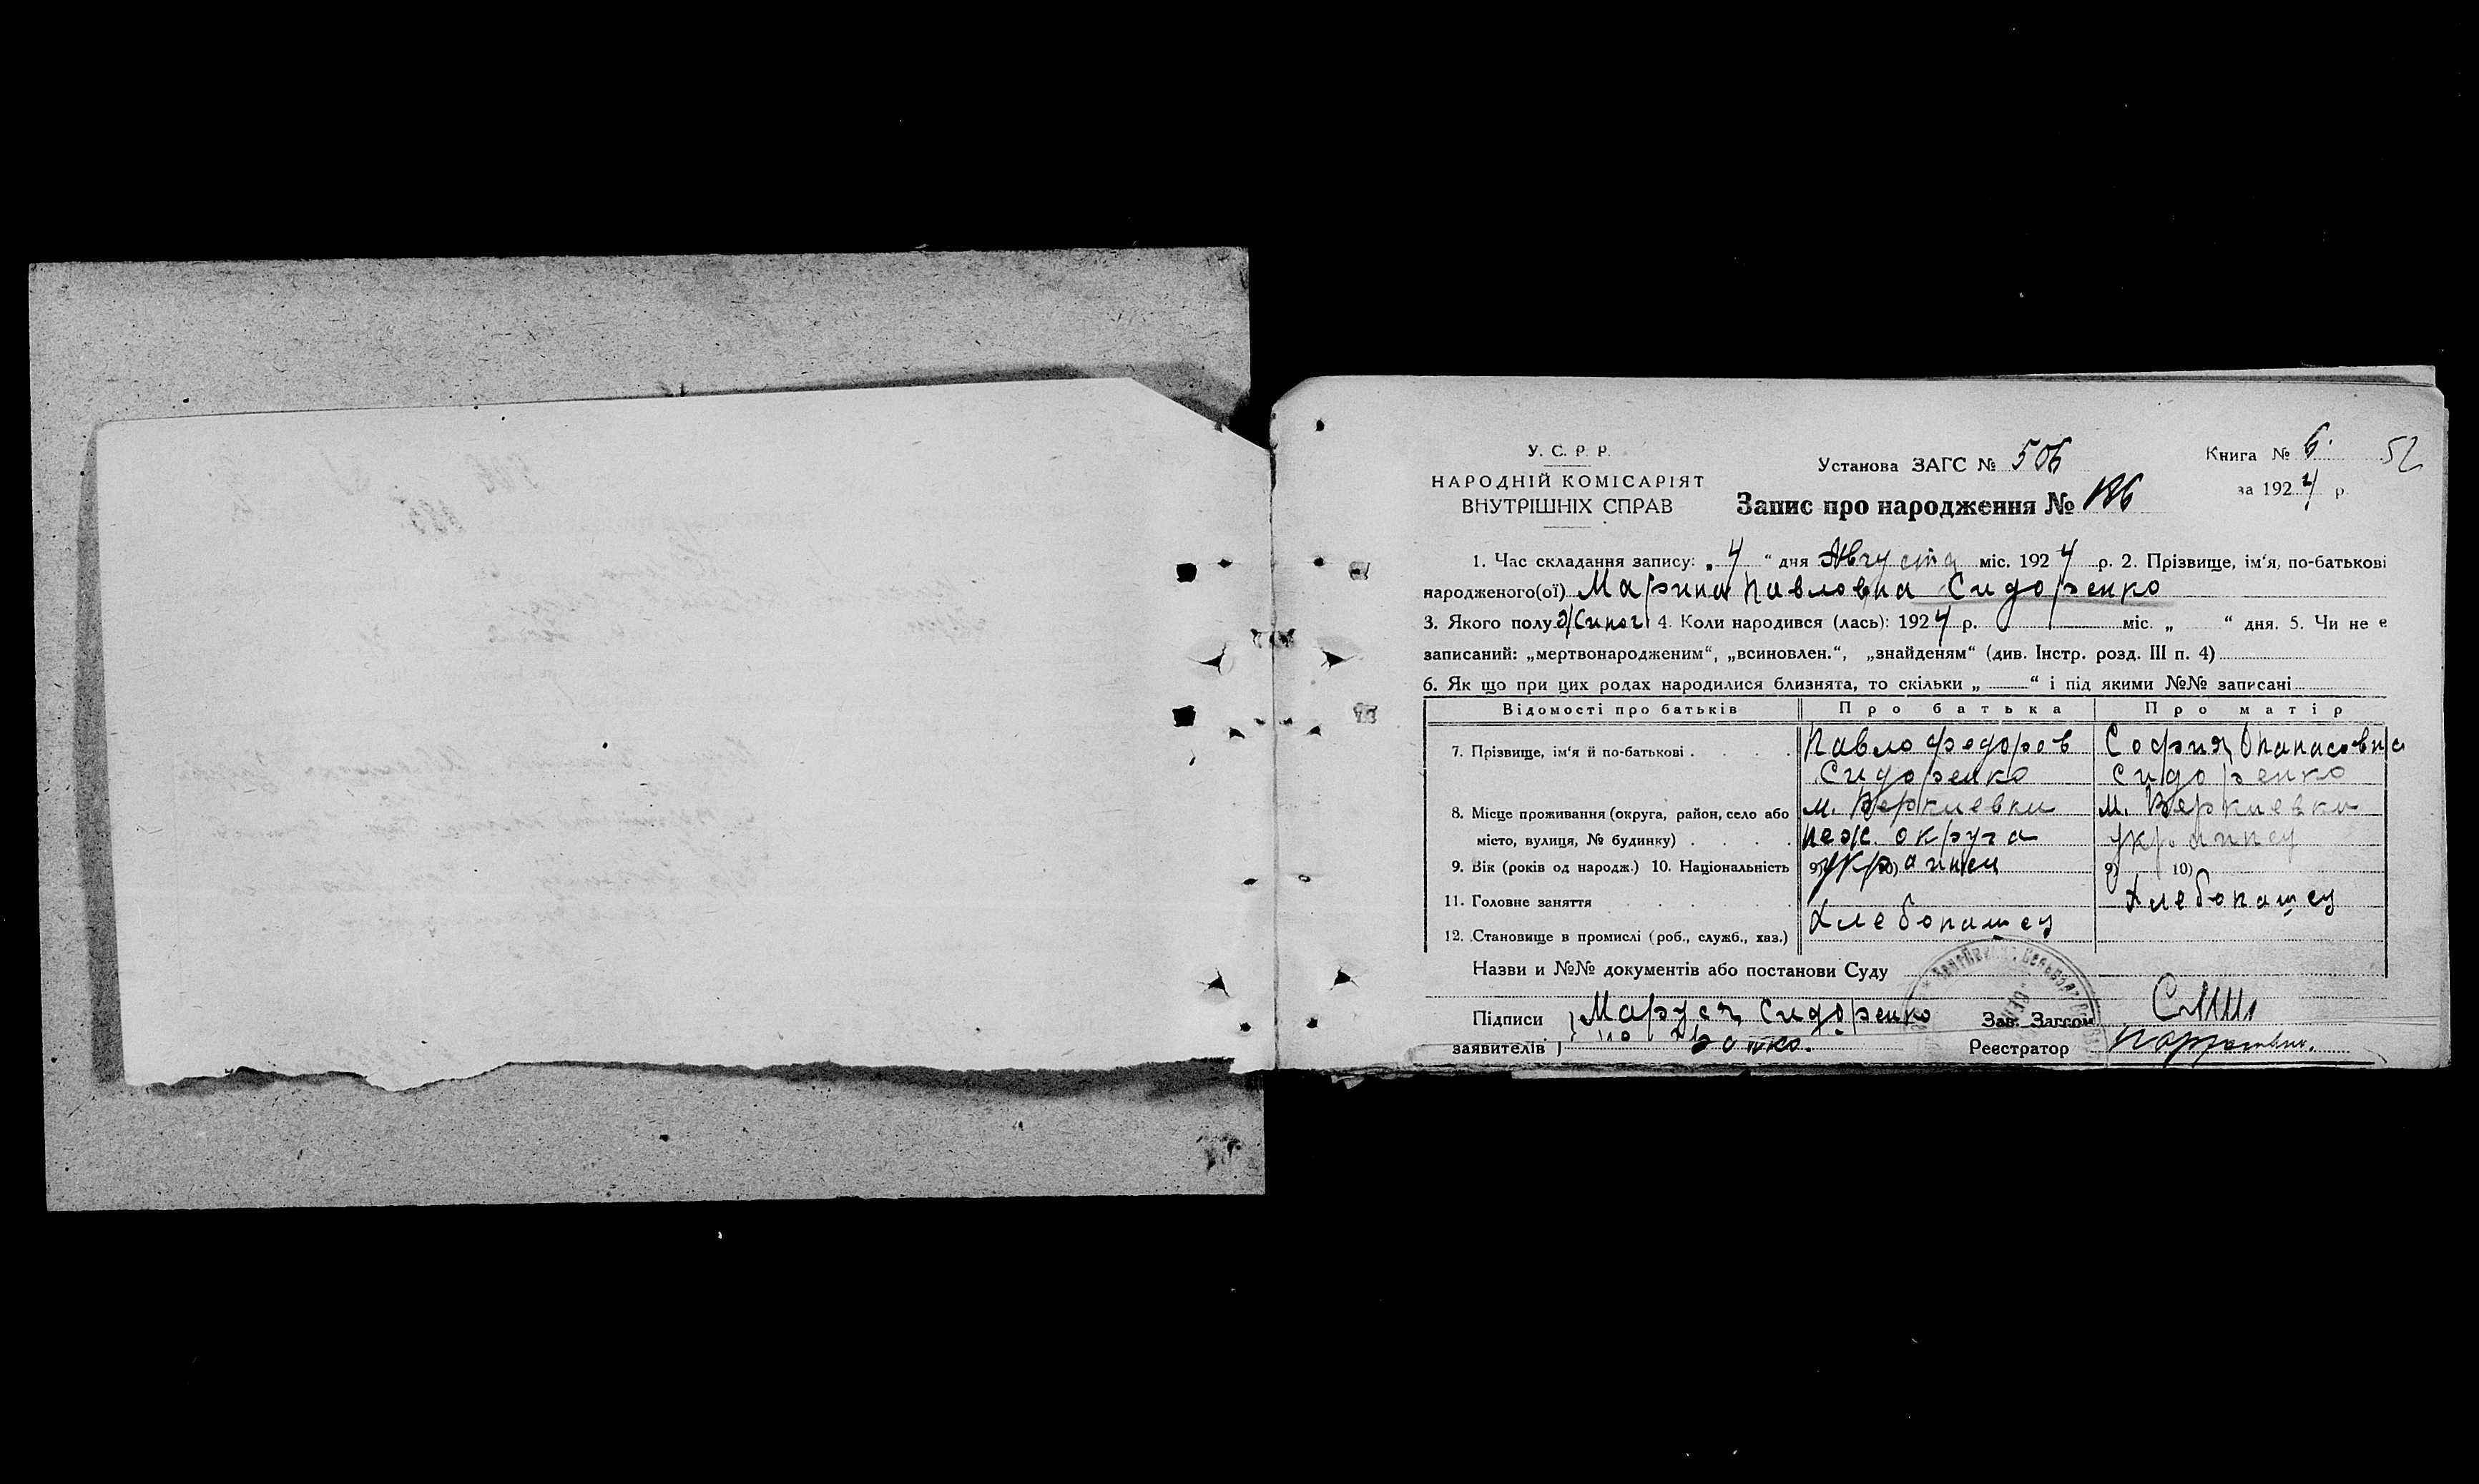 У. С. Р. Р.
НАРОДНІЙ КОМІСАРІЯТ
ВНУТРІШНІХ СПРАВ
Установа ЗАГС № 506
Запис про народження № 186
Книга № 6. 52
за 1924 р.
1. Час складання запису: „4“ дня Августа міс. 1924 р. 2. Прізвище, ім'я, по-батькові
народженого(ої) Марина Павловна Сидоренко
3. Якого полу 4. Коли народився (лась): 1924 р. міс. „ “ дня. 5. Чи не є
записаний: „мертвонародженим“, „всиновлен.“, „знайденям“ (див. Інстр. розд. III п. 4)
6. Як що при цих родах народилися близнята, то скільки „ “ і під якими №№ записані
Відомості про батьків Про батька Про матір
7. Прізвище, ім'я й по-батькові Павло Федоров София Опанасовна
Сидоренко Сидоренко
8. Місце проживання (округа, район, село або м. Веркиевки м. Веркиевки
місто, вулиця, № будинку) неж. округа украинец
9. Вік (років од народж.) 10. Національність 9) 10) украинец 9) 10)
11. Головне заняття Хлебопашец
12. Становище в промислі (роб., служб., хаз.) Хлебопашец
Назви и №№ документів або постанови Суду
Підписи Маруся Сидоренко Зав. Загсом
заявителів Реєстратор